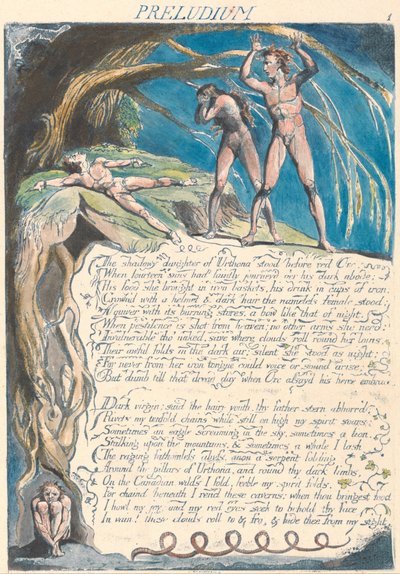 PRELUDIUM
1
The shadowy daughter of Urthona stood before red Orc.
When fourteen suns had faintly journey'd o'er his dark abode;
His food she brought in iron baskets, his drink in cups of iron;
Crown'd with a helmet & dark hair the nameless female stood;
A quiver with its burning stores, a bow like that of night,
When pestilence is shot from heaven; no other arms she need:
Invulnerable tho' naked, save where clouds roll round her loins,
Their awful folds in the dark air; silent she stood as night;
For never from her iron tongue could voice or sound arise;
But dumb till that dread day when Orc assay'd his fierce embrace.
Dark virgin; said the hairy youth, thy father stern abhorr'd;
Rivets my tenfold chains while still on high my spirit soars;
Sometimes an eagle screaming in the sky, sometimes a lion,
Stalking upon the mountains, & sometimes a whale I lash
The raging fathomless abyss, anon a serpent folding
Around the pillars of Urthona, and round thy dark limbs,
On the Canadian wilds I fold, feeble my spirit folds.
For chaind beneath I rend these caverns; when thou bringest food
I howl my joy; and my red eyes seek to behold thy face
In vain! these clouds roll to & fro, & hide thee from my sight.